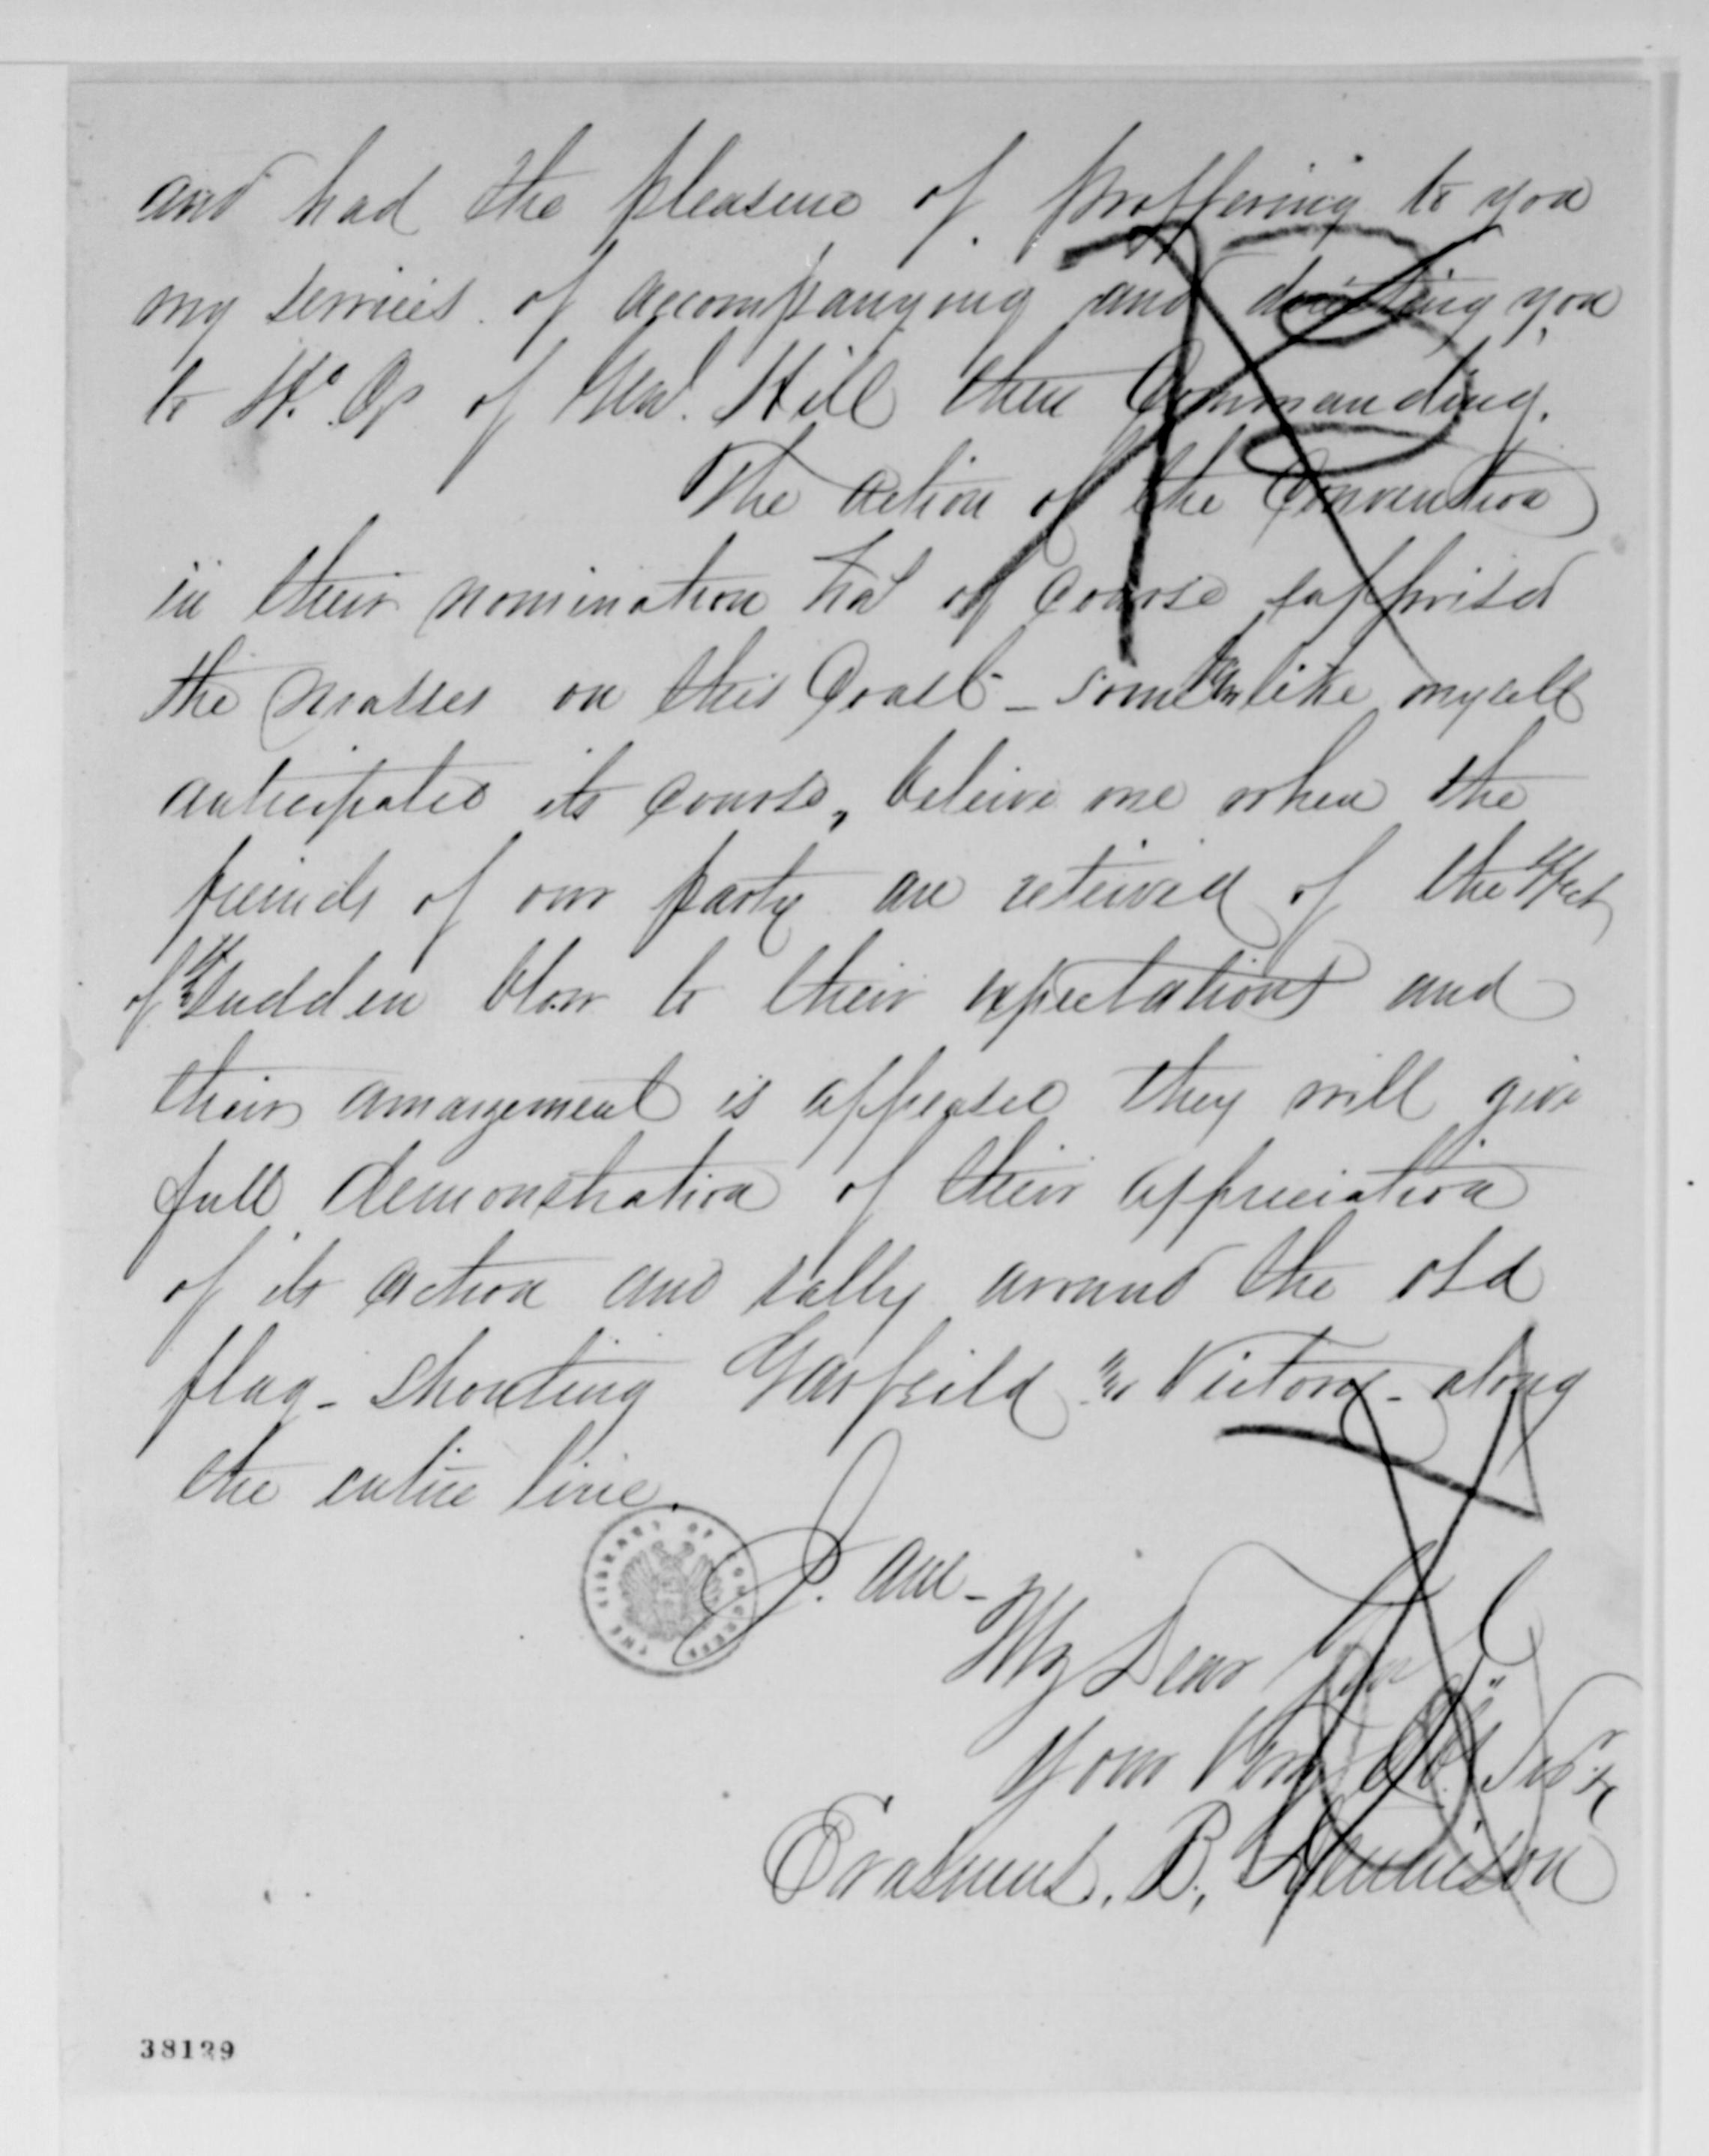 and had the pleasure of proffering to you
my services of accompanying and directing you
to Hd. Qs of Genl. Hill then Commanding.
The action of the Convention
in their nomination has of course surprised
the masses on this Coast - some like myself
anticipated its course, beleive me when the
freinds of our party are releived of the effect
of the sudden blow to their expectations and
their amazement is appeased they will give
full demonstration of their appreciation
of its action and rally around the old
flag - shouting Garfeild & Victory - along
the entire line.
I. am -
My Dear Genl
Your Very Obt. Servt
Erasmus. B., Dennison
THE LIBRARY OF CONGRESS
38129